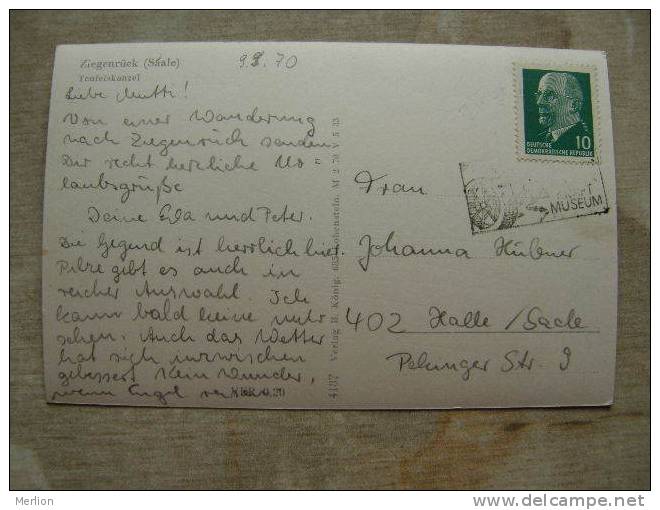 Ziegenrück (Saale)
Teufelskanzel
9.8.70
Liebe Mutti!
Von einer Wanderung
nach Ziegenrück senden
Dir recht herzliche Ur
laubsgrüße
Deine Eva und Peter.
Die Gegend ist herrlich hier.
Pilze gibt es auch in
reicher Auswahl. Ich
kann bald keine mehr
sehen. Auch das Wetter
hat sich inzwischen
gebessert. Kein Wunder,
wenn Engel
4137 Verlag R. König, Hohenstein.
DEUTSCHE
DEMOKRATISCHE REPUBLIK
10
MUSEUM
Frau
Johanna Hübner
402 Halle/Saale
Str. 9
Merlion
www.delcampe.net